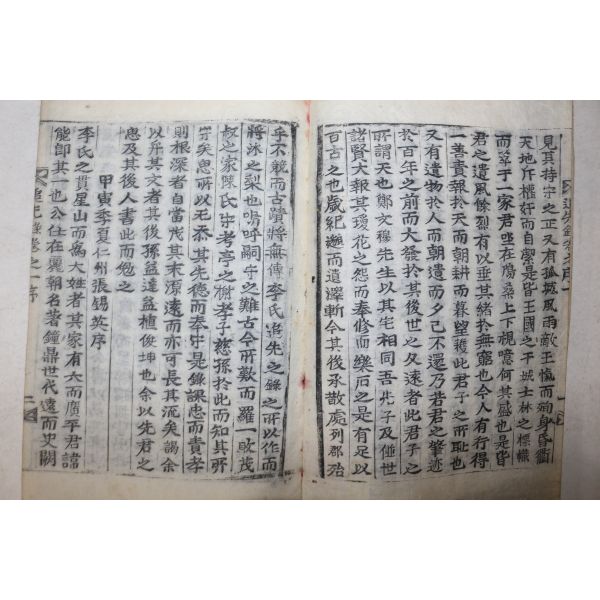 見其持守之正又有孤城風雨敵王愾而殉身昏衢
天地斥權奸而自潔是皆王國之干城士林之標幟
而萃于一家君坐在陽桑上下視噫何其盛也是皆
君之遺風餘烈有以垂其緒於無窮也今人有行得
一善責報於天而朝耕而暮望穫此君子之所恥也
又有遺物於人而朝遺而夕已不還乃若君之肇迹
於百年之前而大發於其後世之又遠者此君子之
所謂天也鄭文穆先生以其宅相同吾先子及僚世
諸賢大報其瓊花之怨而奉修而樂石之是有足以
百古之也歲紀邈而遺澤斬今其後承散處列郡殆
乎不競而古蹟將無傳李氏追先之錄之所以作而
將沐之梨也嗚呼嗣守之難古今所歎而羅一敗茂
叔之家陳氏守考亭之榭孝子慈孫於此而知其所
守矣思所以无忝其先德而奉守是錄課忠而責孝
則根深者自當茂其末源遠而亦可長其流矣謁余
以弁其文者其後孫益達益植俊坤也余以先君之
思及其後人書此而勉之
甲寅季夏仁州張錫英序
李氏之貫星山而爲大姓者其家有六而廣平君諱
能卽其一也公仕在麗朝名著鐘鼎世代遠而史闕
追先錄卷之一序
二